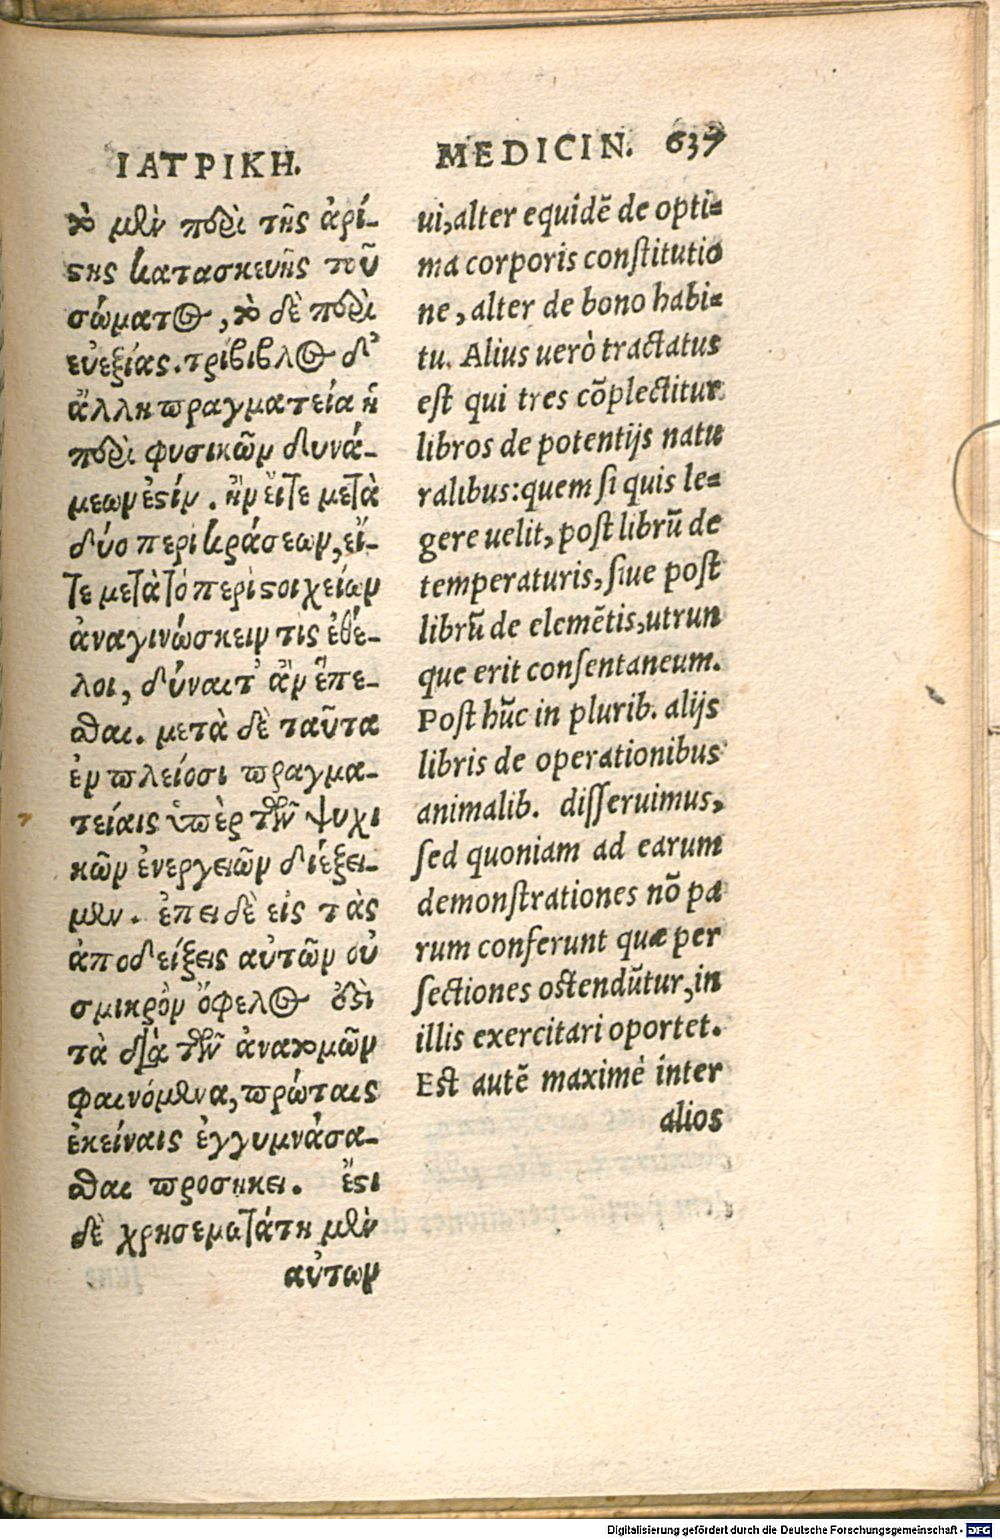 ΙΑΤΡΙΚΗ.
τὸ μὲν περὶ τῆς ἀρί-
στης κατασκευῆς τοῦ
σώματος, τὸ δὲ περὶ
εὐεξίας. τρίβιβλος δ᾽
ἄλλη πραγματεία ἡ
περὶ φυσικῶν δυνά-
μεων ἐστίν. ἣν εἴτε μετὰ
δύο περὶ κράσεων, εἴ-
τε μετὰ τὸ περὶ στοιχείων
ἀναγινώσκειν τις ἐθέ-
λοι, δύναιτ᾽ ἂν ἕπε-
σθαι. μετὰ δὲ ταῦτα
ἐν πλείοσι πραγμα-
τείαις ὑπὲρ τῶν ψυχι
κῶν ἐνεργειῶν διέξει-
μεν. ἐπει δὲ εἰς τὰς
ἀποδείξεις αὐτῶν οὐ
σμικρὸν ὄφελος ἐστὶ
τὰ διὰ τῶν ἀνατομῶν
φαινόμενα, πρώταις
ἐκείναις ἐγγυμνάσα-
σθαι προσηκει. ἔστι
δὲ χρησεμωτάτη μὲν
αὐτων
MEDICIN. 637
ui, alter equidē de opti-
ma corporis constitutio
ne, alter de bono habi-
tu. Alius uerò tractatus
est qui tres cōplectitur
libros de potentijs natu
ralibus: quem si quis le-
gere uelit, post librū de
temperaturis, siue post
librū de elemētis, utrun
que erit consentaneum.
Post hūc in plurib. alijs
libris de operationibus
animalib. disseruimus,
sed quoniam ad earum
demonstrationes nō pa
rum conferunt quæ per
sectiones ostendūtur, in
illis exercitari oportet.
Est autē maximè inter
alios
Digitalisierung gefördert durch die Deutsche Forschungsgemeinschaft - DFG